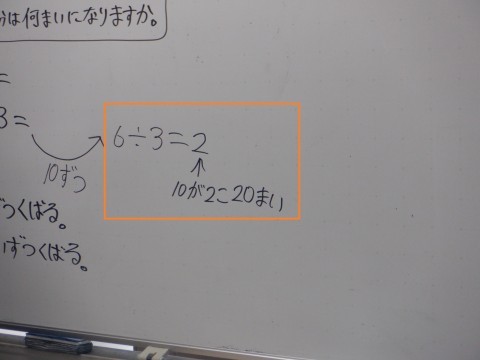 分は何まいになりますか。
=
3=
6÷3=2
10ずつ
10が2こ20まい
ずつくばる。
いずつくばる。